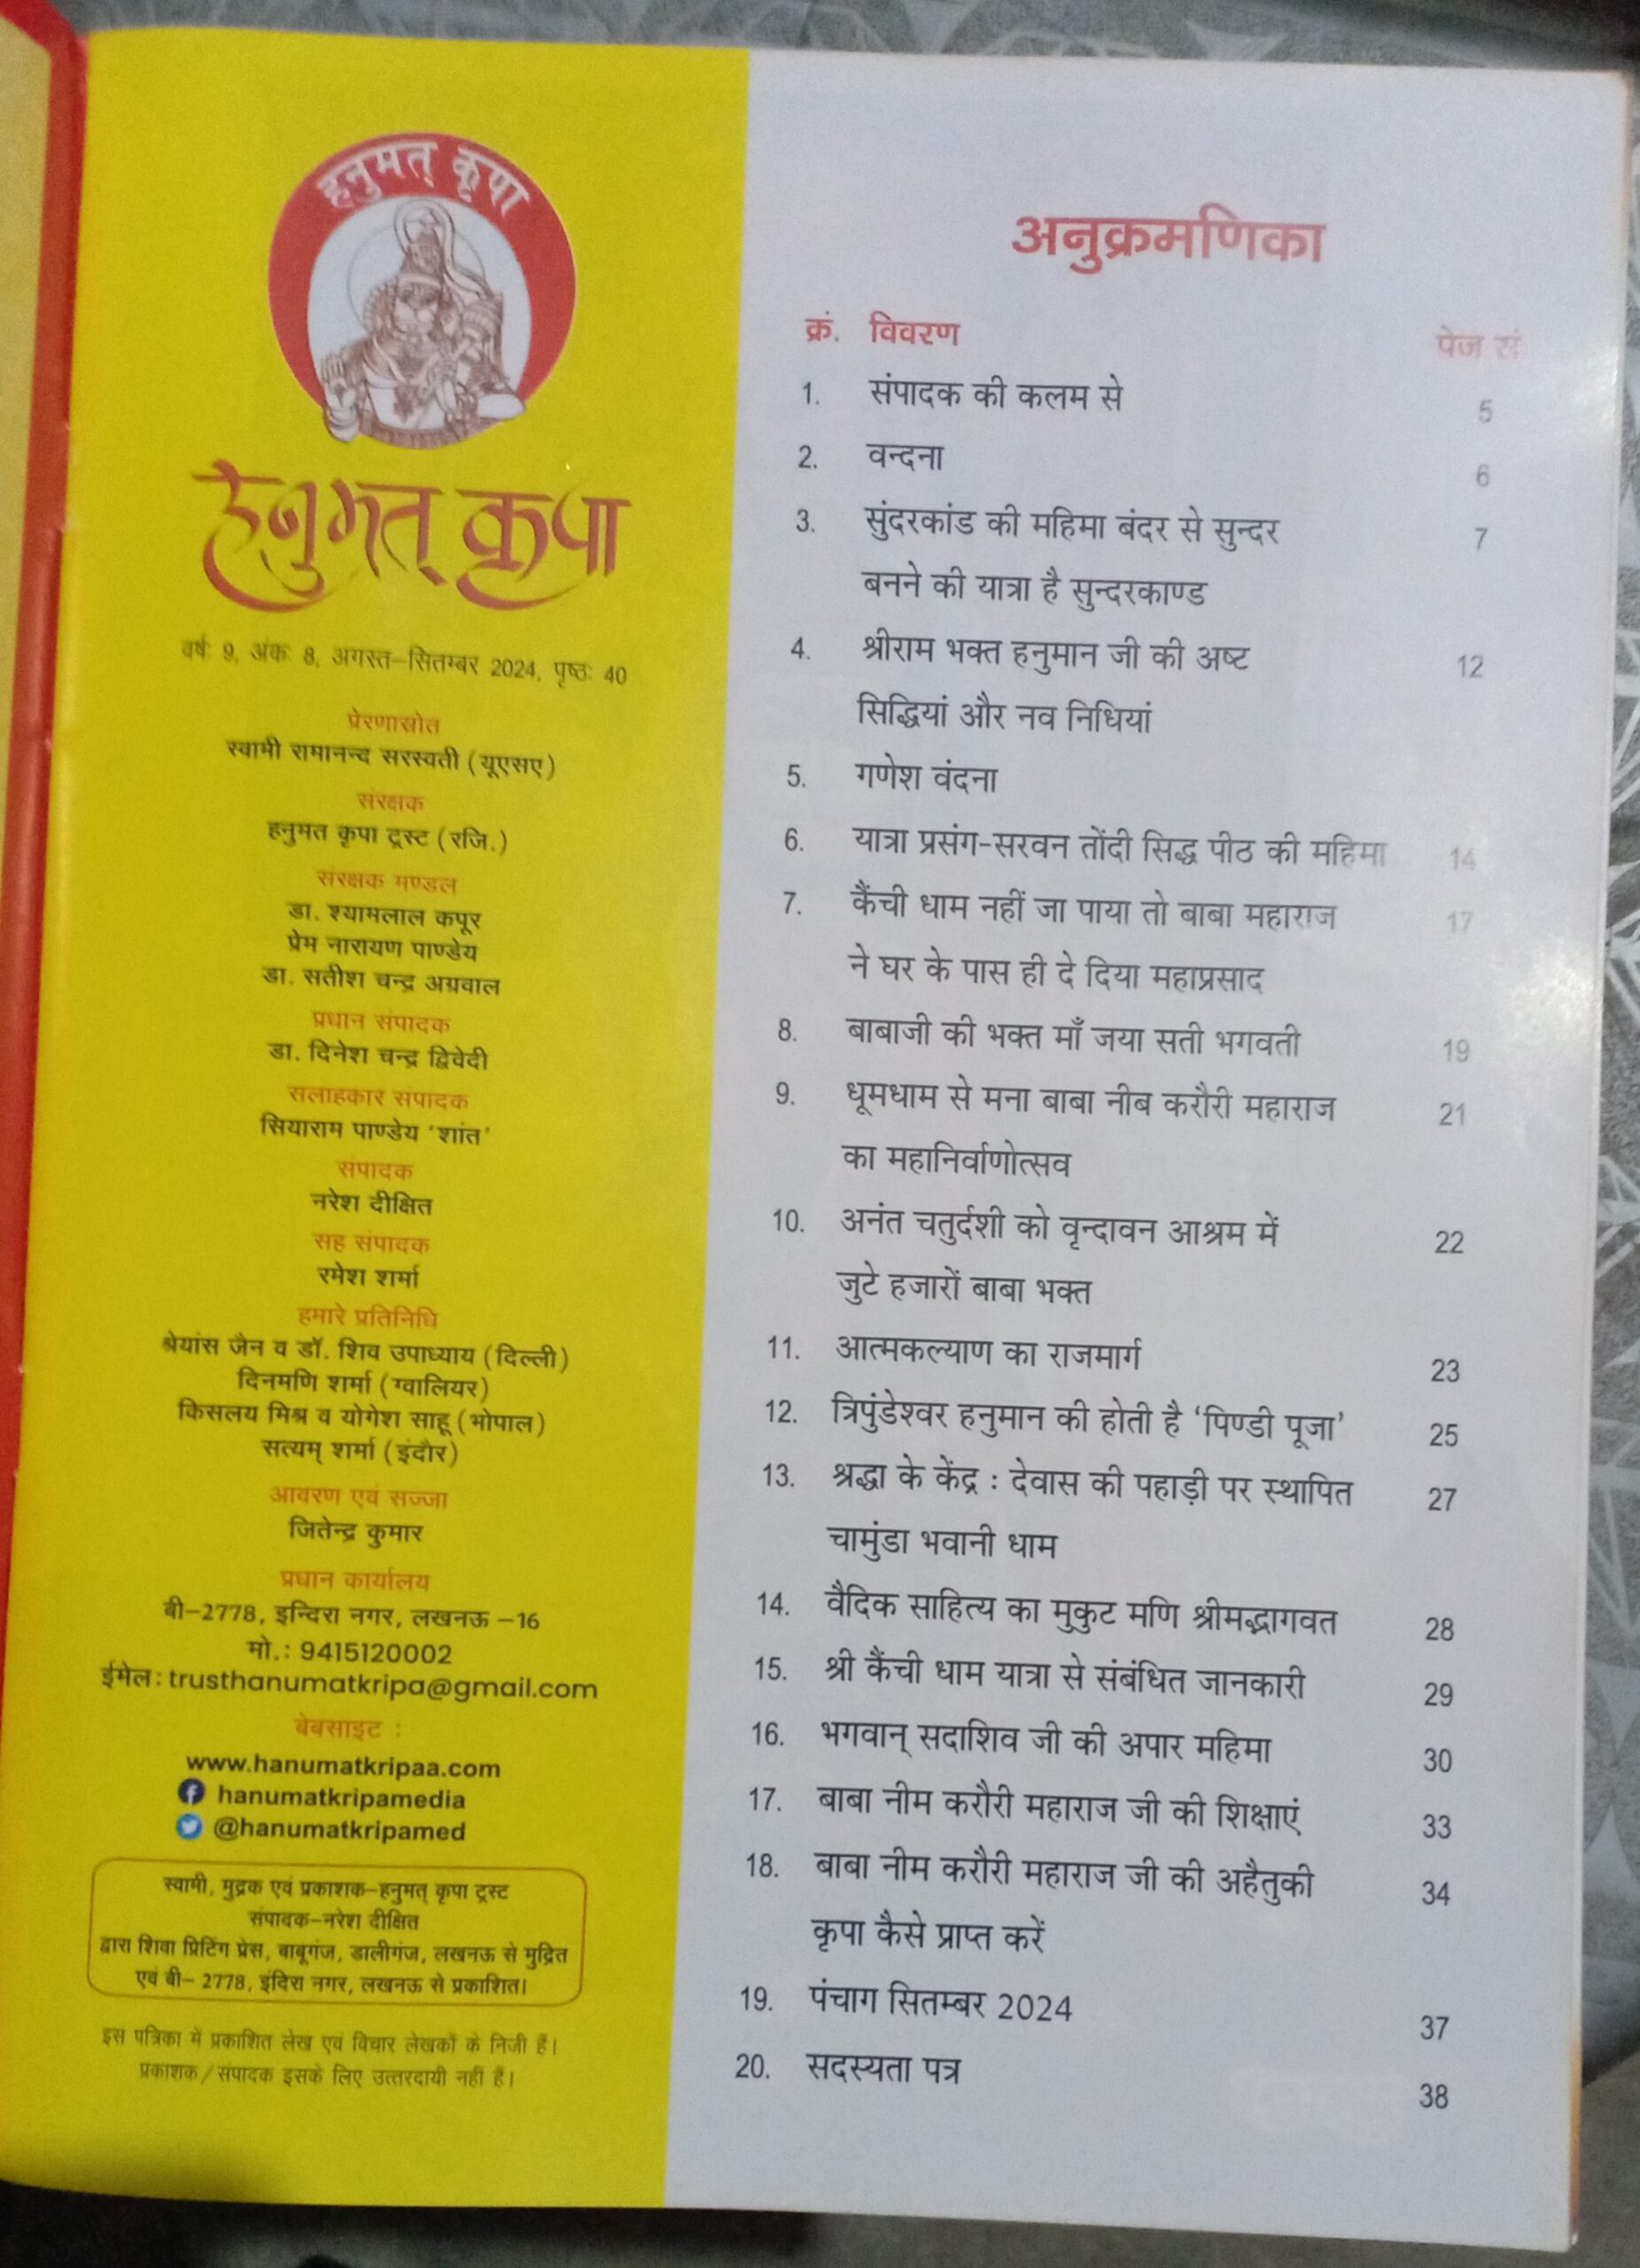 हनुमत् कृपा
हनुमत् कृपा
वर्षः 9, अंकः 8, अगस्त–सितम्बर 2024, पृष्ठः 40
प्रेरणास्रोत
स्वामी रामानन्द सरस्वती (यूएसए)
संरक्षक
हनुमत कृपा ट्रस्ट (रजि.)
संरक्षक मण्डल
डा. श्यामलाल कपूर
प्रेम नारायण पाण्डेय
डा. सतीश चन्द्र अग्रवाल
प्रधान संपादक
डा. दिनेश चन्द्र द्विवेदी
सलाहकार संपादक
सियाराम पाण्डेय ‘शांत’
संपादक
नरेश दीक्षित
सह संपादक
रमेश शर्मा
हमारे प्रतिनिधि
श्रेयांस जैन व डॉ. शिव उपाध्याय (दिल्ली)
दिनमणि शर्मा (ग्वालियर)
किसलय मिश्र व योगेश साहू (भोपाल)
सत्यम् शर्मा (इंदौर)
आवरण एवं सज्जा
जितेन्द्र कुमार
प्रधान कार्यालय
बी–2778, इन्दिरा नगर, लखनऊ –16
मो.: 9415120002
ईमेल: trusthanumatkripa@gmail.com
बेबसाइट :
www.hanumatkripaa.com
hanumatkripamedia
@hanumatkripamed
स्वामी, मुद्रक एवं प्रकाशक–हनुमत् कृपा ट्रस्ट
संपादक–नरेश दीक्षित
द्वारा शिवा प्रिटिंग प्रेस, बाबूगंज, डालीगंज, लखनऊ से मुद्रित
एवं बी– 2778, इंदिरा नगर, लखनऊ से प्रकाशित।
इस पत्रिका में प्रकाशित लेख एवं विचार लेखकों के निजी हैं।
प्रकाशक/संपादक इसके लिए उत्तरदायी नहीं हैं।
अनुक्रमणिका
क्रं. विवरण पेज सं.
1. संपादक की कलम से 5
2. वन्दना 6
3. सुंदरकांड की महिमा बंदर से सुन्दर 7
बनने की यात्रा है सुन्दरकाण्ड
4. श्रीराम भक्त हनुमान जी की अष्ट 12
सिद्धियां और नव निधियां
5. गणेश वंदना
6. यात्रा प्रसंग-सरवन तोंदी सिद्ध पीठ की महिमा 14
7. कैंची धाम नहीं जा पाया तो बाबा महाराज 17
ने घर के पास ही दे दिया महाप्रसाद
8. बाबाजी की भक्त माँ जया सती भगवती 19
9. धूमधाम से मना बाबा नीब करौरी महाराज 21
का महानिर्वाणोत्सव
10. अनंत चतुर्दशी को वृन्दावन आश्रम में 22
जुटे हजारों बाबा भक्त
11. आत्मकल्याण का राजमार्ग 23
12. त्रिपुंडेश्वर हनुमान की होती है ‘पिण्डी पूजा’ 25
13. श्रद्धा के केंद्र : देवास की पहाड़ी पर स्थापित 27
चामुंडा भवानी धाम
14. वैदिक साहित्य का मुकुट मणि श्रीमद्भागवत 28
15. श्री कैंची धाम यात्रा से संबंधित जानकारी 29
16. भगवान् सदाशिव जी की अपार महिमा 30
17. बाबा नीम करौरी महाराज जी की शिक्षाएं 33
18. बाबा नीम करौरी महाराज जी की अहैतुकी 34
कृपा कैसे प्राप्त करें
19. पंचाग सितम्बर 2024 37
20. सदस्यता पत्र 38